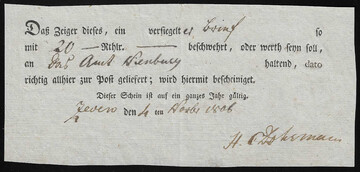 Daß Zeiger dieses, ein versiegelter Brief so
mit 20 Rthlr. beschwehrt, oder werth seyn soll,
an das Amt Nienburg haltend, dato
richtig allhier zur Post geliefert; wird hiermit bescheiniget.
Dieser Schein ist auf ein ganzes Jahr gültig.
Zeven den 4 ten
H.